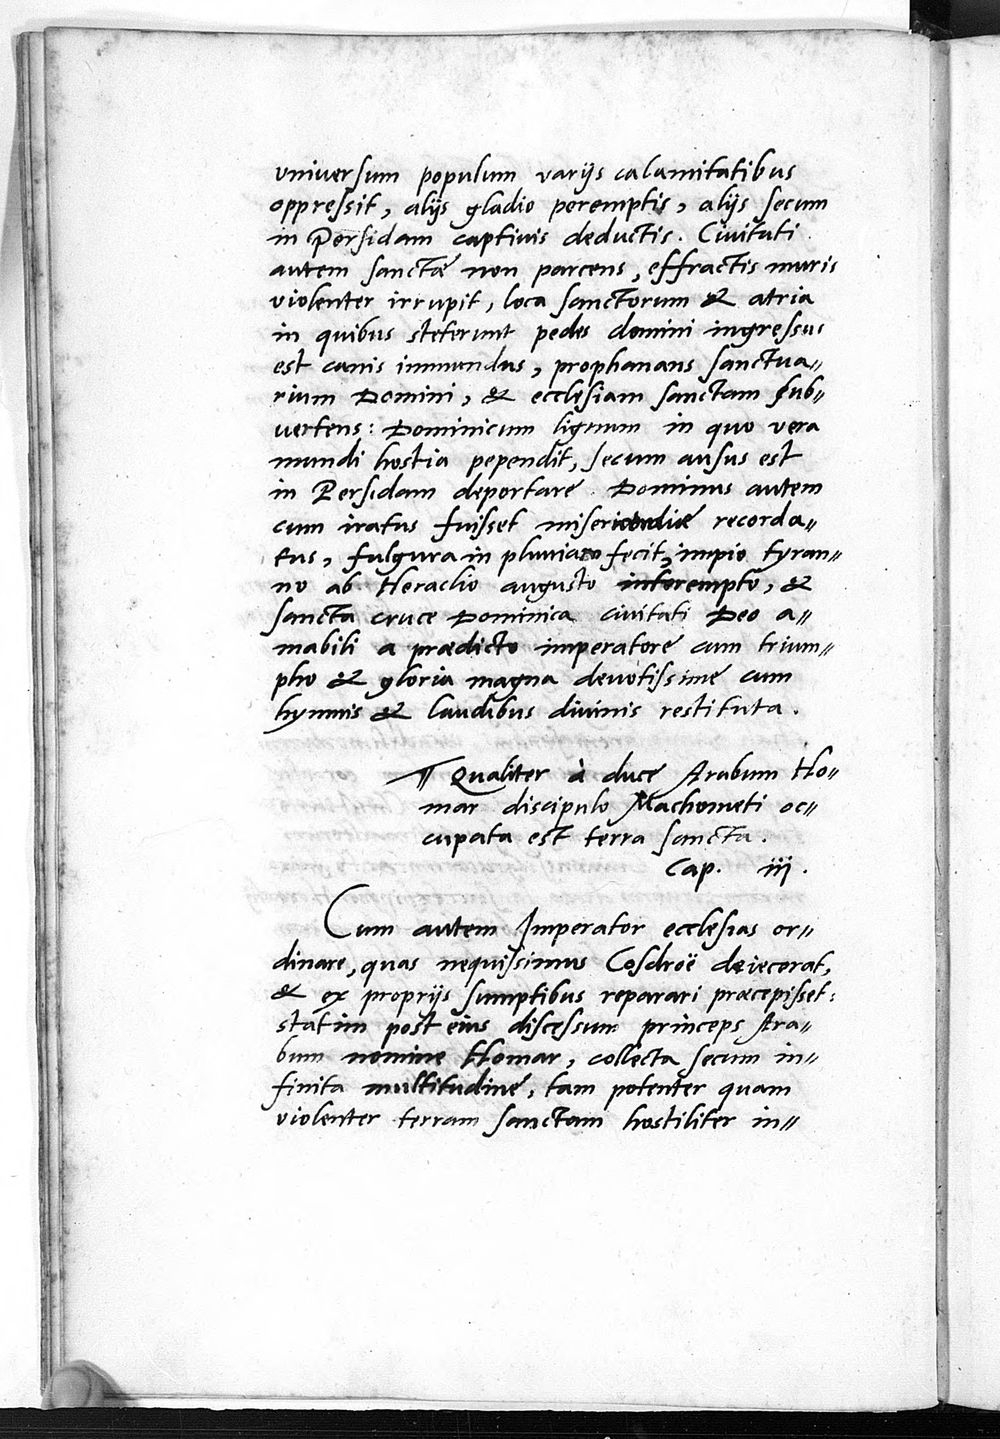 vniuersum populum varijs calamitatibus
oppressit, alijs gladio peremptis, alijs secum
in Persidam captiuis deductis. Ciuitati
autem sanctæ non parcens, effractis muris
violenter irrupit, loca sanctorum & atria
in quibus steterunt pedes domini ingressus
est canis immundus, prophanans sanctua〃
rium Domini, & ecclesiam sanctam sub〃
uertens: Dominicum lignum in quo vera
mundi hostia pependit, secum ausus est
in Persidam deportare. Dominus autem
cum iratus fuisset misericordiæ recorda〃
tus, fulgura in pluuiam fecit, impio tyran〃
no ab Heraclio augusto interempto, &
sancta cruce Dominica ciuitati Deo a〃
mabili a prædicto imperatore cum trium〃
pho & gloria magna deuotissime cum
hymnis & laudibus diuinis restituta.
¶ Qualiter à duce Arabum Ho〃
mar discipulo Machometi oc〃
cupata est terra sancta.
Cap. iij.
Cum autem Imperator ecclesias or〃
dinare, quas nequissimus Cosdroë deiecerat,
& ex proprijs sumptibus reparari præcepisset:
statim post eius discessum princeps Ara〃
bum nomine Homar, collecta secum in〃
finita multitudine, tam potenter quam
violenter terram sanctam hostiliter in〃